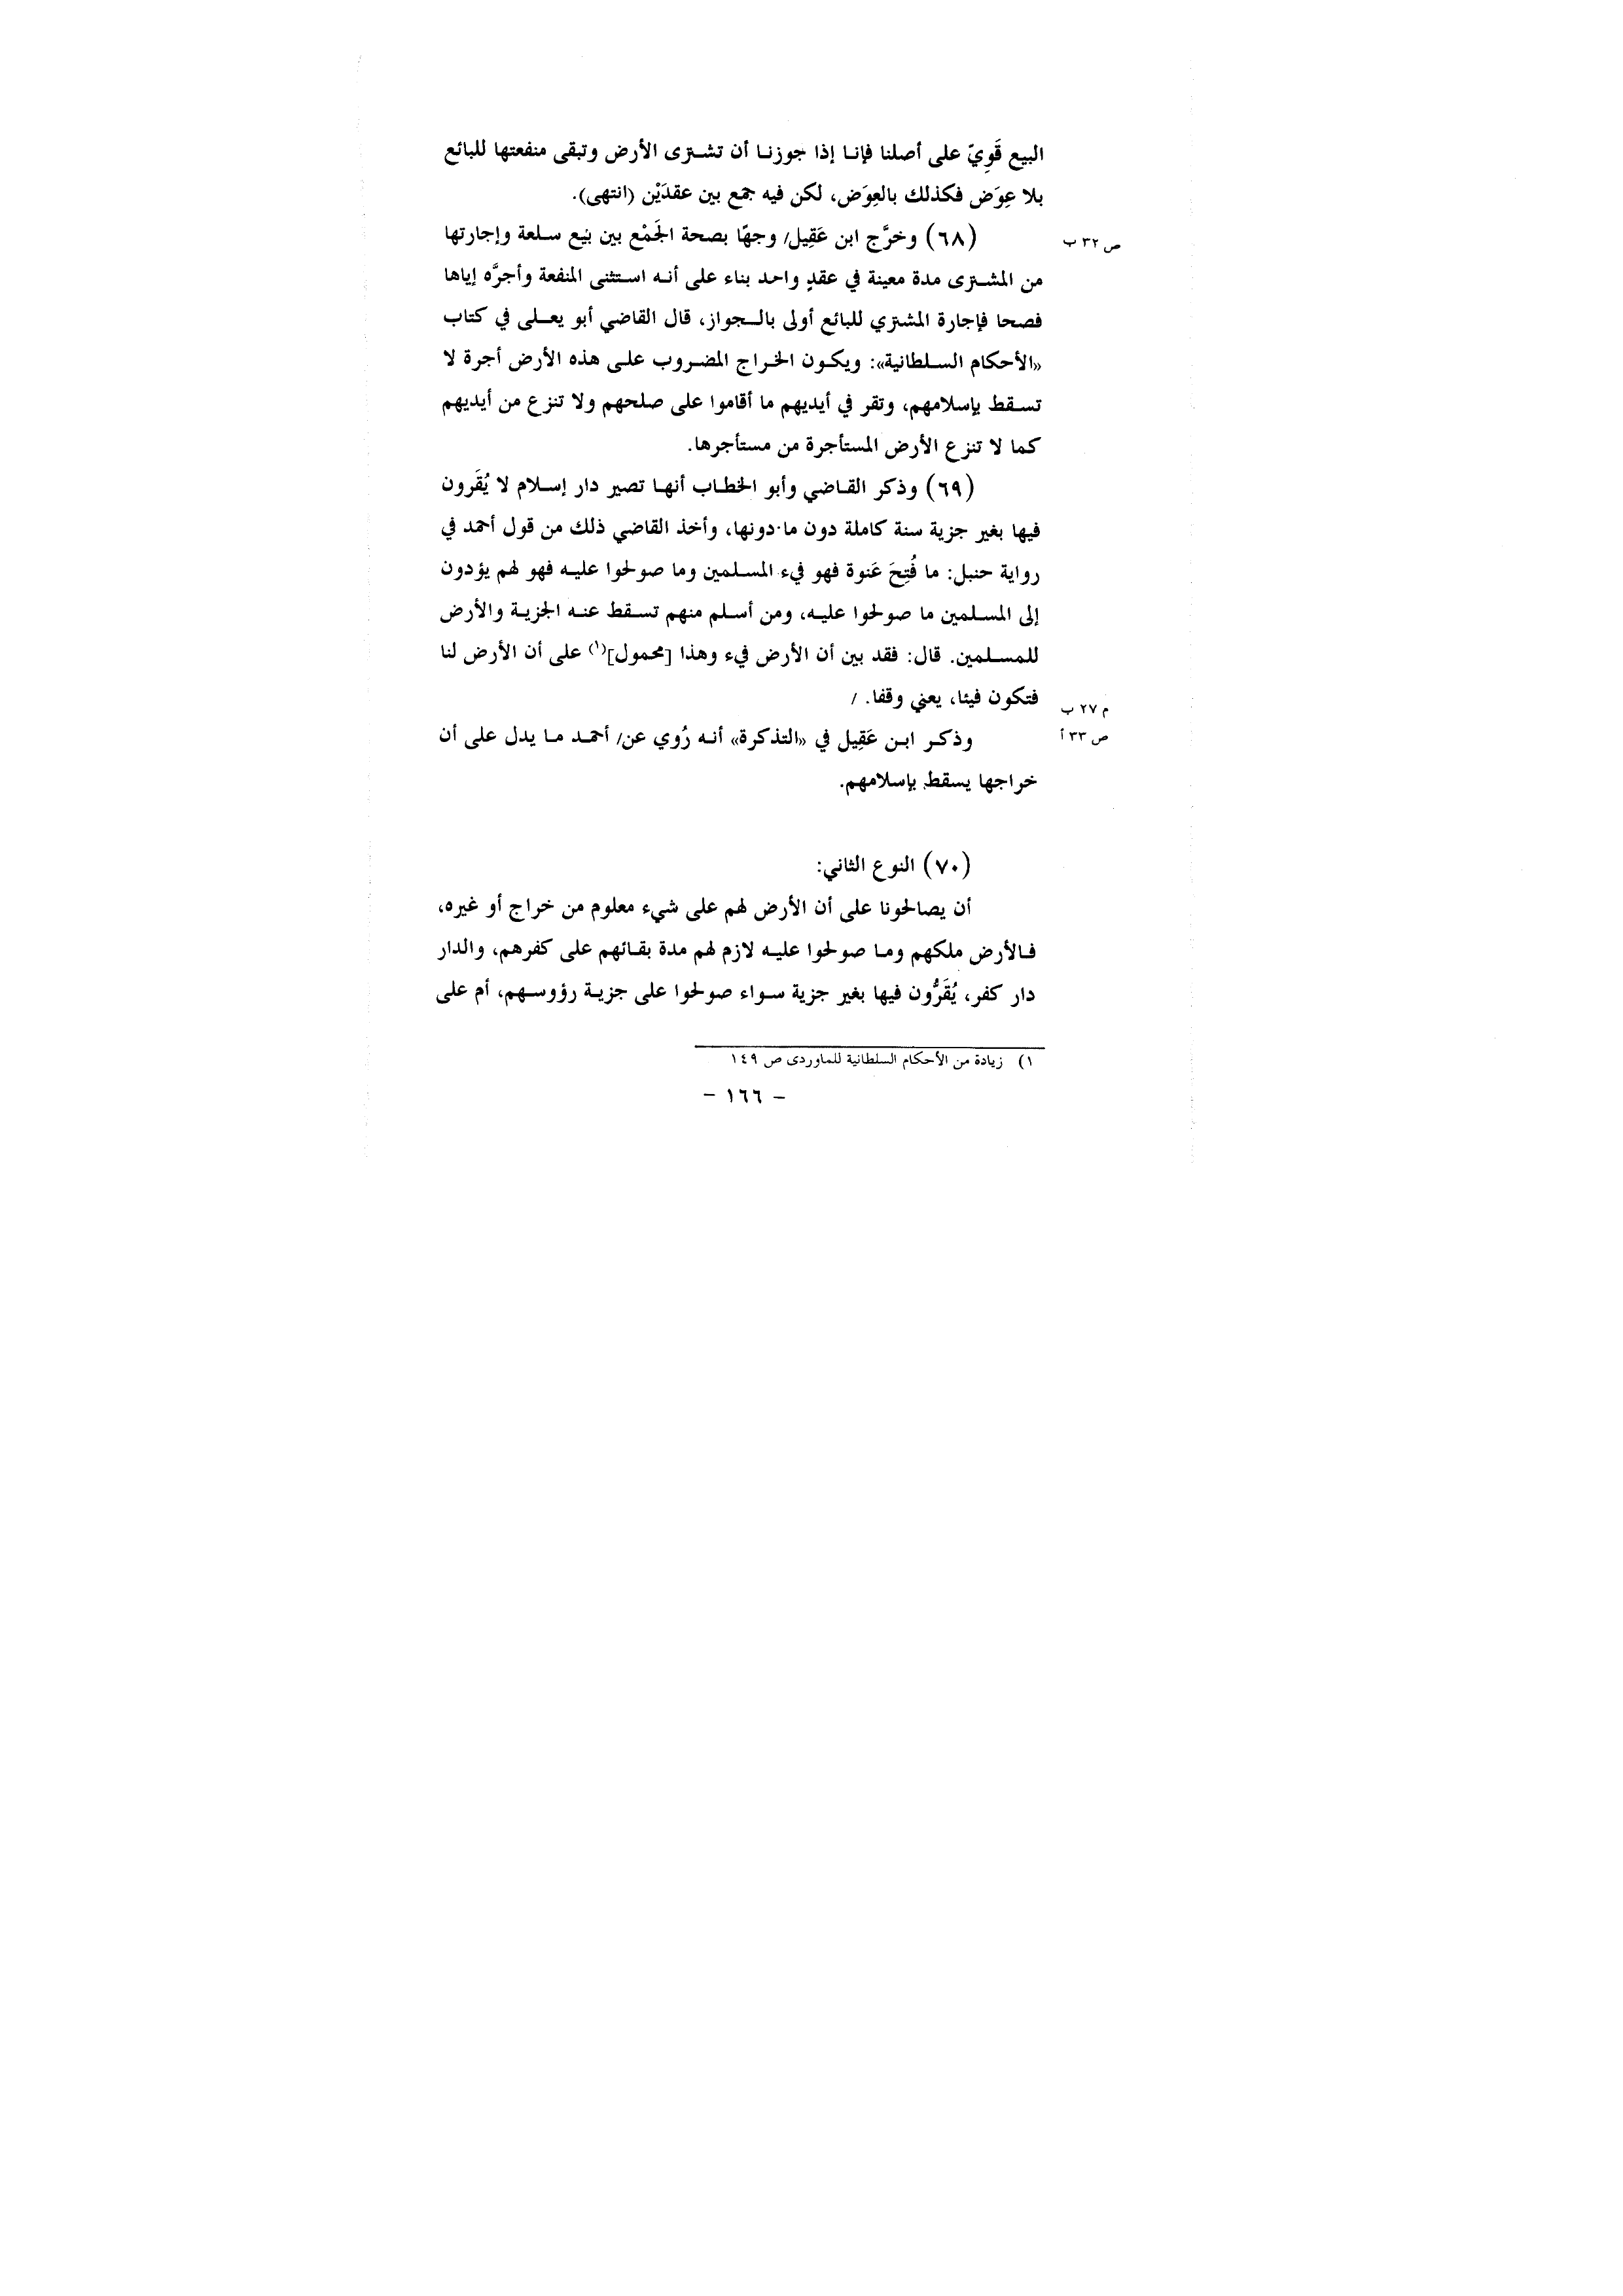 البيع قَوِيّ على أصلنا فإنا إذا جوزنا أن تشترى الأرض وتبقى منفعتها للبائع
بلا عِوَض فكذلك بالعِوَض، لكن فيه جمع بين عقدَيْن (انتهى).
(٦٨) وخرَّج ابن عَقِيل/ وجهًا بصحة الجَمْع بين بيع سلعة وإجارتها
ص ٣٢ ب
من المشترى مدة معينة في عقدٍ واحد بناء على أنه استثنى المنفعة وأجرَّه إياها
فصحا فإجارة المشتري للبائع أولى بالجواز، قال القاضي أبو يعلى في كتاب
«الأحكام السلطانية»: ويكون الخراج المضروب على هذه الأرض أجرة لا
تسقط بإسلامهم، وتقر في أيديهم ما أقاموا على صلحهم ولا تنزع من أيديهم
كما لا تنزع الأرض المستأجرة من مستأجرها.
(٦٩) وذكر القاضي وأبو الخطاب أنها تصير دار إسلام لا يُقَرون
فيها بغير جزية سنة كاملة دون ما دونها، وأخذ القاضي ذلك من قول أحمد في
رواية حنبل: ما فُتِحَ عَنوة فهو فيء المسلمين وما صولحوا عليه فهو لهم يؤدون
إلى المسلمين ما صولحوا عليه، ومن أسلم منهم تسقط عنه الجزية والأرض
للمسلمين. قال: فقد بين أن الأرض فيء وهذا [محمول](١) على أن الأرض لنا
فتكون فيئا، يعني وقفا. /
م ٢٧ ب
وذكر ابن عَقِيل في «التذكرة» أنه رُوي عن/ أحمد ما يدل على أن
ص ٣٣ أ
خراجها يسقط بإسلامهم.
(٧٠) النوع الثاني:
أن يصالحونا على أن الأرض لهم على شيء معلوم من خراج أو غيره،
فالأرض ملكهم وما صولحوا عليه لازم لهم مدة بقائهم على كفرهم، والدار
دار كفر، يُقَرُّون فيها بغير جزية سواء صولحوا على جزية رؤوسهم، أم على
١) زيادة من الأحكام السلطانية للماوردى ص ١٤٩
– ١٦٦ –